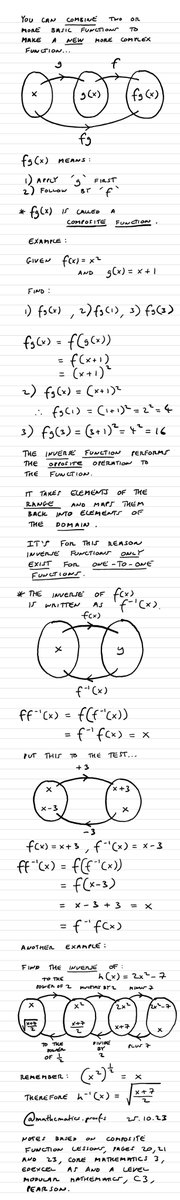 YOU CAN COMBINE TWO OR
MORE BASIC FUNCTIONS TO
MAKE A NEW MORE COMPLEX
FUNCTION...
g f
x g(x) fg(x)
fg
fg(x) MEANS:
1) APPLY 'g' FIRST
2) FOLLOW BY 'f'
* fg(x) IS CALLED A
COMPOSITE FUNCTION.
EXAMPLE:
GIVEN f(x) = x²
AND g(x) = x + 1
FIND:
1) fg(x), 2) fg(1), 3) fg(3)
fg(x) = f(g(x))
= f(x+1)
= (x+1)²
2) fg(x) = (x+1)²
∴ fg(1) = (1+1)² = 2² = 4
3) fg(3) = (3+1)² = 4² = 16
THE INVERSE FUNCTION PERFORMS
THE OPPOSITE OPERATION TO
THE FUNCTION.
IT TAKES ELEMENTS OF THE
RANGE AND MAPS THEM
BACK INTO ELEMENTS OF
THE DOMAIN.
IT'S FOR THIS REASON
INVERSE FUNCTIONS ONLY
EXIST FOR ONE-TO-ONE
FUNCTIONS.
* THE INVERSE OF f(x)
IS WRITTEN AS f⁻¹(x).
f(x)
x y
f⁻¹(x)
ff⁻¹(x) = f(f⁻¹(x))
= f⁻¹f(x) = x
PUT THIS TO THE TEST...
+3
x x+3
x-3 x
-3
f(x) = x+3, f⁻¹(x) = x-3
ff⁻¹(x) = f(f⁻¹(x))
= f(x-3)
= x - 3 + 3 = x
= f⁻¹f(x)
ANOTHER EXAMPLE:
FIND THE INVERSE OF:
h(x) = 2x² - 7
TO THE POWER OF 2 MULTIPLY BY 2 MINUS 7
x x² 2x² 2x²-7
√((x+7)/2) (x+7)/2 x+7 x
TO THE POWER OF 1/2 DIVIDE BY 2 PLUS 7
REMEMBER: (x²)^½ = x
THEREFORE h⁻¹(x) = √((x+7)/2)
@mathematics.proofs 25.10.23
NOTES BASED ON COMPOSITE
FUNCTION LESSONS, PAGES 20, 21
AND 23, CORE MATHEMATICS 3,
EDEXCEL AS AND A LEVEL
MODULAR MATHEMATICS, C3,
PEARSON.